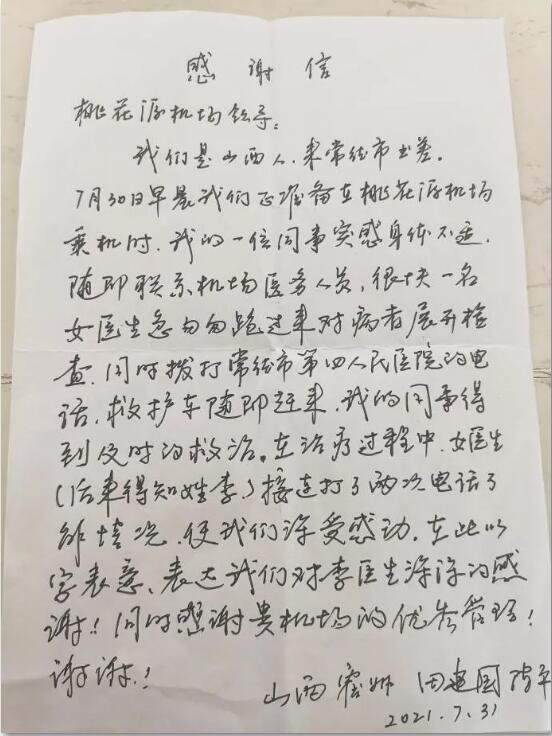 感谢信
桃花源机场领导:
我们是山西人,来常德市出差。
7月30日早晨我们正准备在桃花源机场
乘机时,我的一位同事突感身体不适,
随即联系机场医务人员,很快一名
女医生急匆匆跑过来对病者展开检
查,同时拨打常德市第四人民医院的电
话,救护车随即赶来,我的同事得
到及时的救治。在治疗过程中,女医生
(后来得知姓李)接连打了两次电话了
解情况,使我们深受感动,在此以
字表意、表达我们对李医生深深的感
谢!!同时感谢贵机场的优秀管理!
谢谢!
山西霍州 田建国
2021.7.31